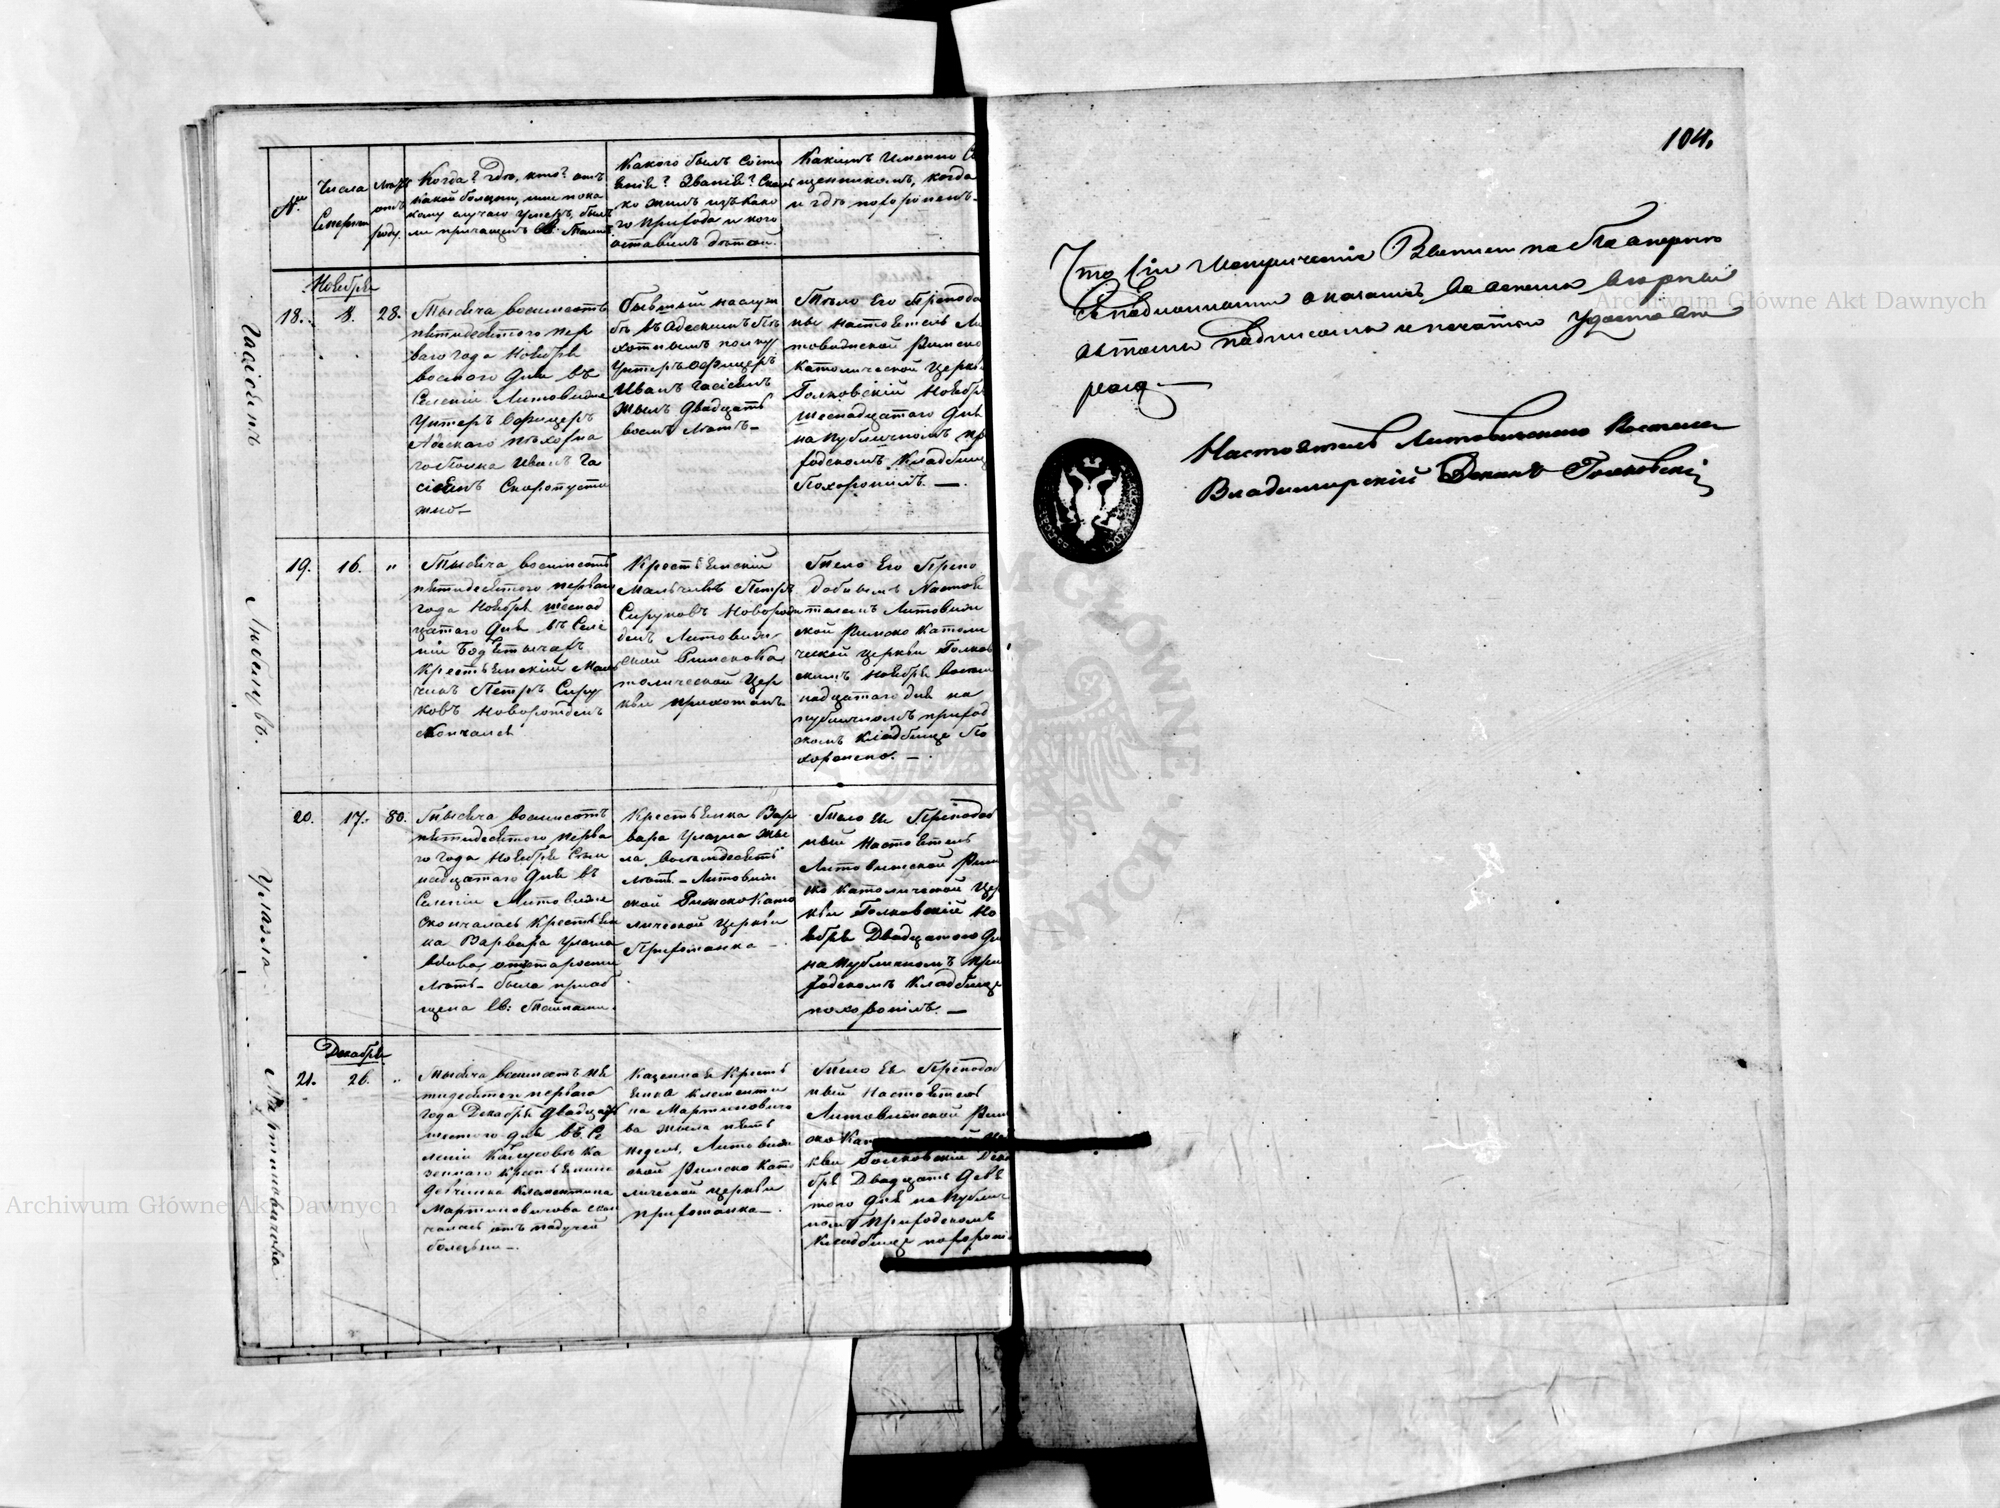 №
Числа
Смерти
Лѣтъ
отъ
роду.
Когда? гдѣ, кто? отъ
какой болезни, или по ка
кому случаю умеръ, былъ
ли причащенъ Св: Таинъ
Какого былъ состо
янія? Званія? Сколь
ко жилъ изъ како
го прихода и кого
оставилъ дѣтей.
Какимъ именно Св
ященникомъ, когда
и гдѣ похороненъ.
Ноября
18.
8.
28.
Тысяча восемьсотъ
пятидесятого пер
ваго года Ноября
восмого дня въ
Селеніи Литовиже
Унтеръ Офицеръ
Адескаго пѣхотна
го Полка Иванъ Га
сіевъ Скоропусти
жно.
Бывшый на служ
бѣ въ Адескимъ Пѣ
хотнымъ полку
Унтеръ Офицеръ
Иванъ Гасіевъ
жилъ Двадцать
восемь лѣтъ.
Тѣло Его Преподо
ный Настоятель Ли
товижской Римско
Католической Церкв
Голковскій Ноября
шеснадцатого дня
на публичномъ пр
ходскомъ Кладбищ
Похоронилъ. —
19.
16.
"
Тысяча восемьсотъ
пятидесятого перваго
года Ноября шеснад
цатого дня въ Селе
ніи
Крестьянскій Маль
чикъ Петръ Сиру
ковъ Новорожденъ
скончался
Крестьянскій
Мальчикъ Петръ
Сируковъ Новорож
денъ Литовиж
ской Римско Ка
толической Цер
кви прихожанъ
Тело Его Препо
добнымъ Настоя
телемъ Литовиж
ской Римско Католи
ческой Церкви Голков
скимъ Ноября восем
надцатого дня на
публичномъ приход
скомъ кладбище По
хоронено. —
20.
17.
80.
Тысяча восемьсотъ
пятидесятого перва
го года Ноября Семи
надцатого дня въ
Селеніи Литовиже
Скончалась Крестьян
ка Варвара Улазла
вдова, отъ старости
лѣтъ была приоб
щена Св: Тайнами.
Крестьянка Вар
вара Улазла жы
ла восемдесятъ
лѣтъ. — Литовиж
ской Римско Като
лической Церкви
Прихожанка —.
Тѣло Ея Преподоб
ный Настоятель
Литовижской Рим
ско Католической Цер
кви Голковскій Но
ября Двадцатого дн
на публичномъ При
ходскомъ Кладбище
похоронилъ. —
Декабря
21.
26.
"
Тысяча восемьсотъ пя
тидесятого перваго
года Декабря двадцать
шестого дня въ Се
леніи Калусовѣ Ка
зенного крестьянина
Девчинка Клементина
Мартиновичова скон
чалась отъ падучей
болезни —.
Казенная Кресть
янка Клементи
на Мартинович
ва жыла пять
недель, Литовиж
ской Римско Като
лической церкви
прихожанка —.
Тѣло Ея Преподоб
ный Настоятель
Литовижской Рим
ско Кат
кви Голковскій Дека
бря Двадцать Девя
того дня на публич
номъ Приходскомъ
Кладбище похорони
Гасіевъ
Улазла
Мартиновичова
104.
Что сіи Метрическіе
актами подписомъ и печатью удостовѣ
ряю —
Настоятель Литовижского Костела
Владимирскій Деканъ Голковскій
Archiwum Główne Akt Dawnych
Archiwum Główne Akt Dawnych